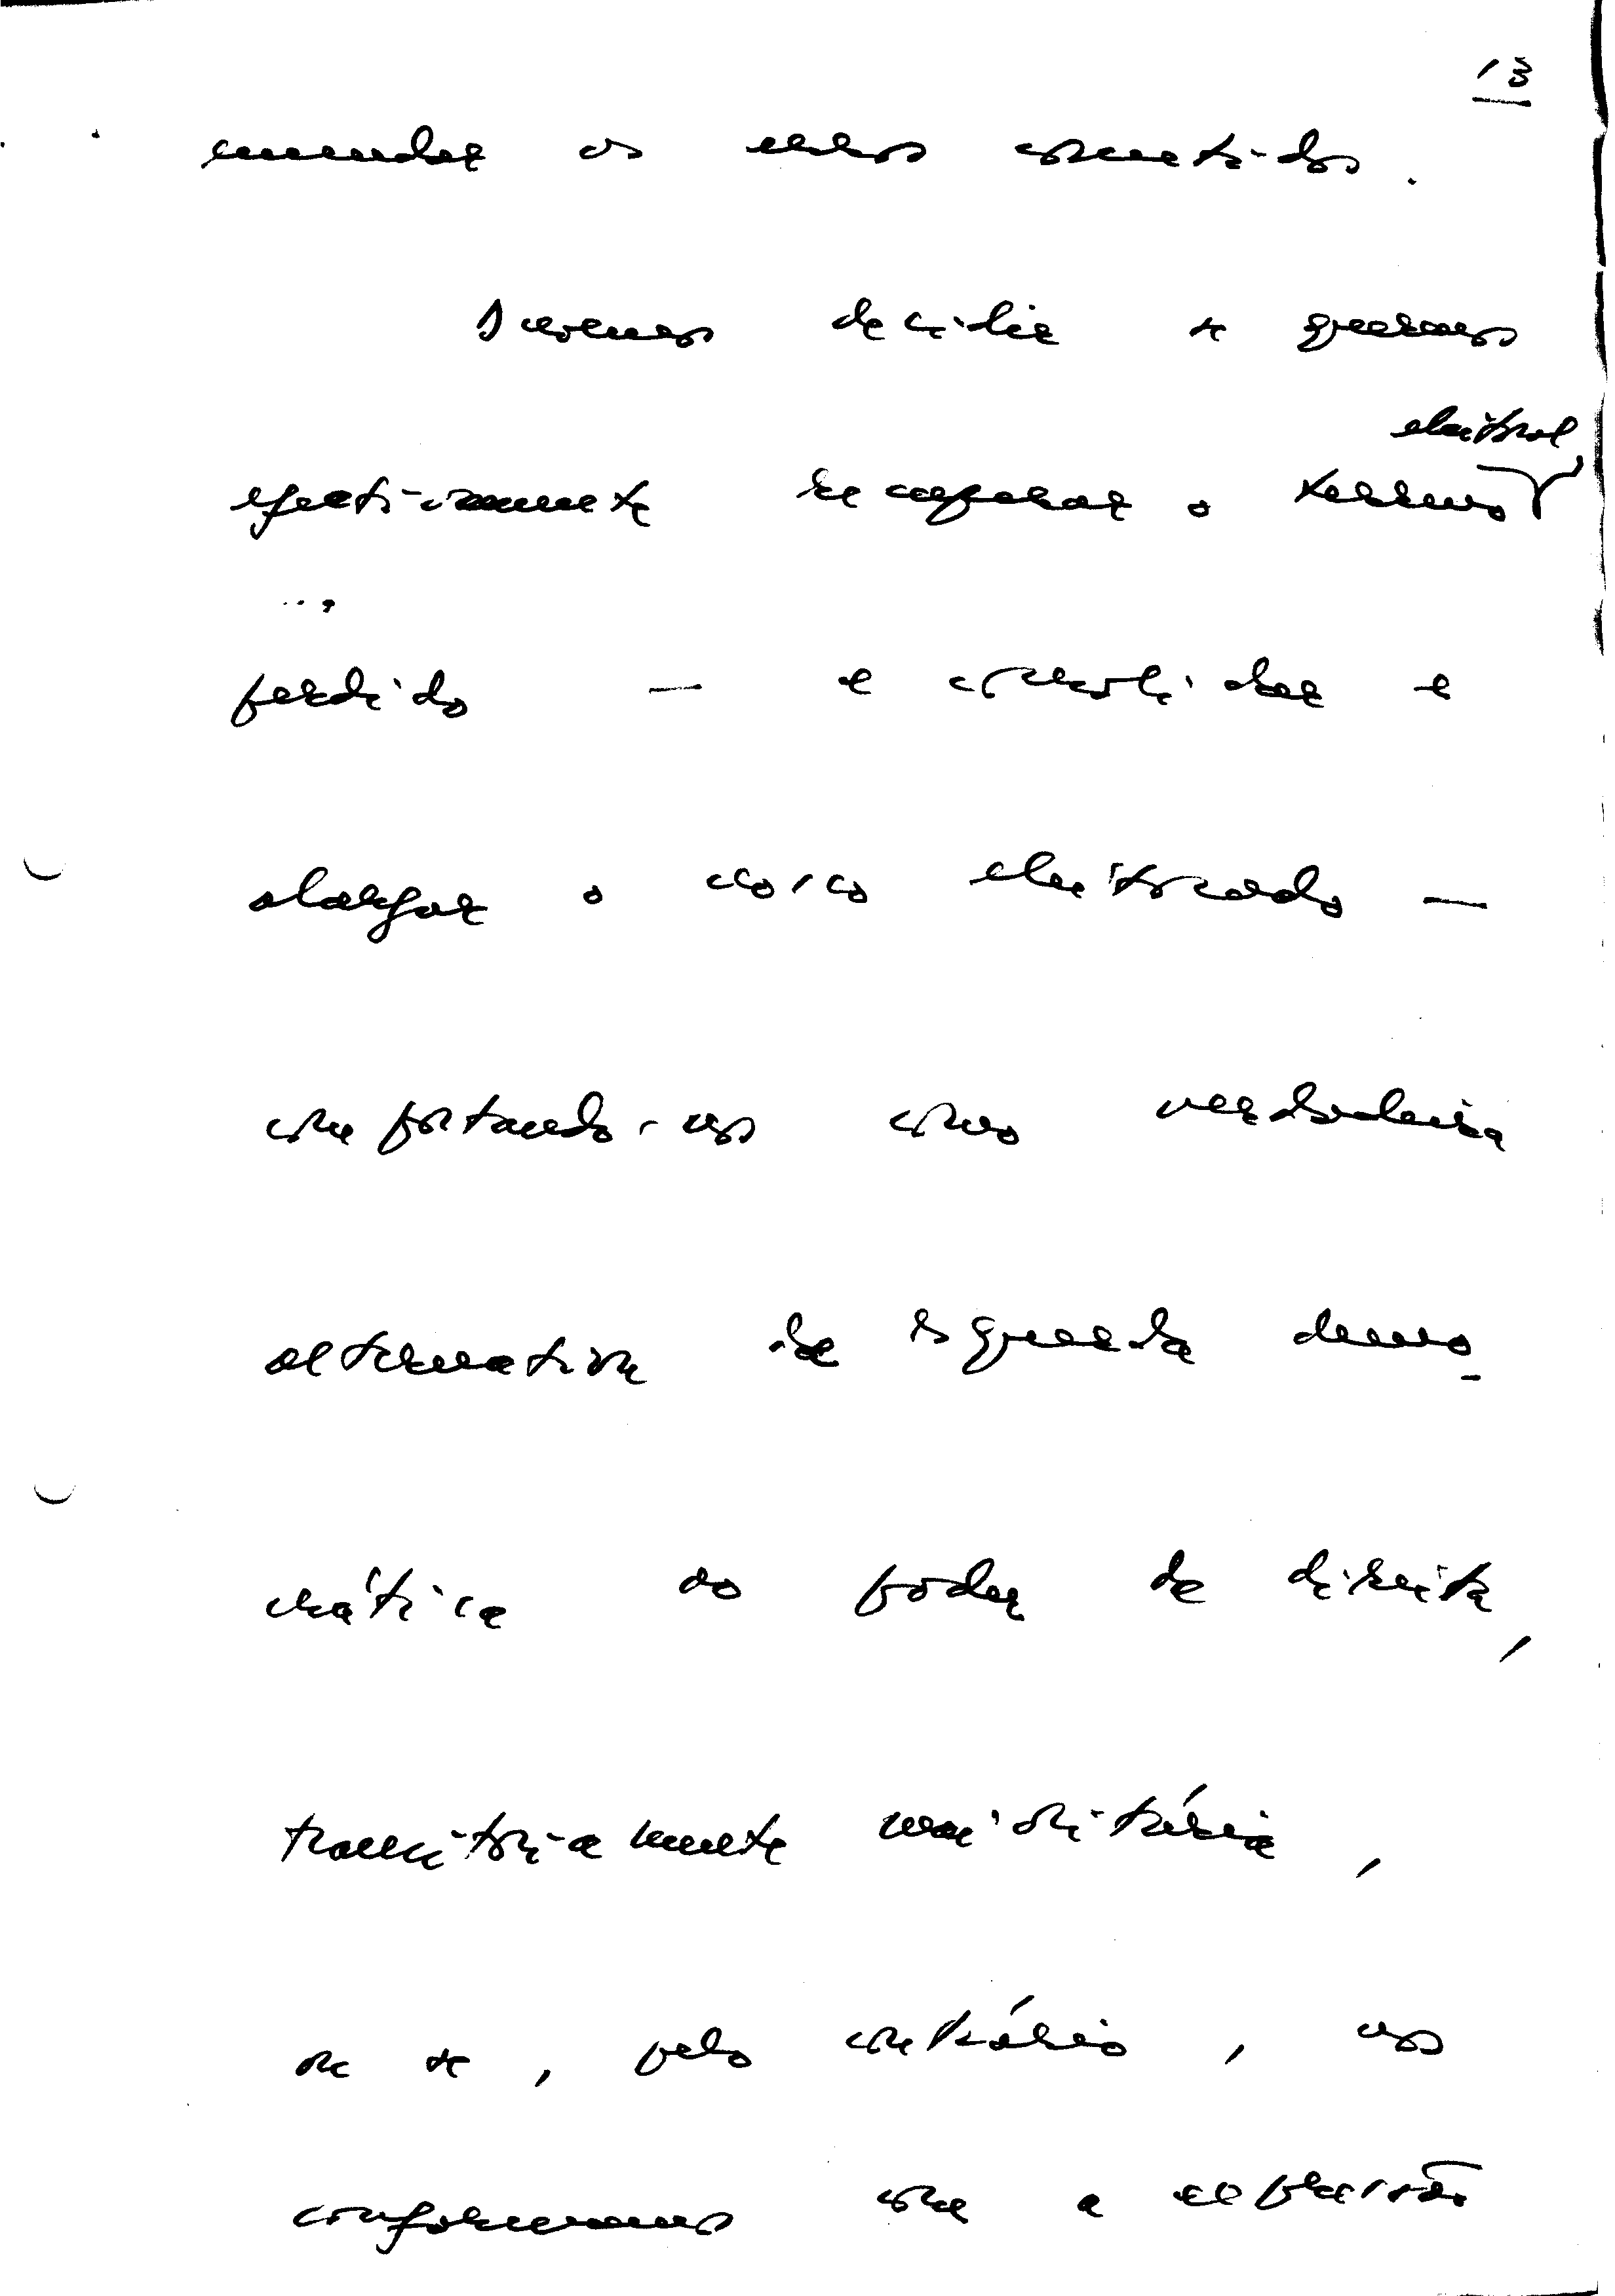 13
emendar os erros cometidos.
Devemos decidir se queremos
eleitoral,
efectivamente recuperar o terreno
perdido — e consolidar e
alargar o nosso eleitorado —
comportando-nos como verdadeira
alternativa de esquerda demo-
crática ao poder de direita,
transitoriamente maioritária,
ou se, pelo contrário, nos
conformamos com a expressão